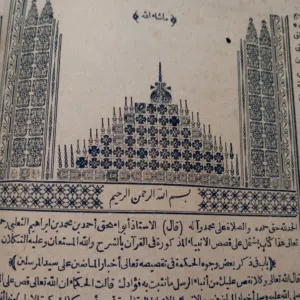 ما شاء الله
بسم الله الرحمن الرحيم
الحمد لله حق حمده والصلاة على محمد وآله (قال) الاستاذ أبو اسحق أحمد بن محمد بن ابراهيم الثعلبي رحمه
تعالى هذا كتاب يشتمل على قصص الانبياء المذكورة في القرآن بالشرح والله المستعان وعليه التكلان
(باب في ذكر بعض وجوه الحكمة في تقصيصه تعالى أخبار الماضين على سيد المرسلين)
الله تعالى وكلا نقص عليك من أنباء الرسل ما نثبت به فؤادك قالت الحكماء ان الله تعالى قص على